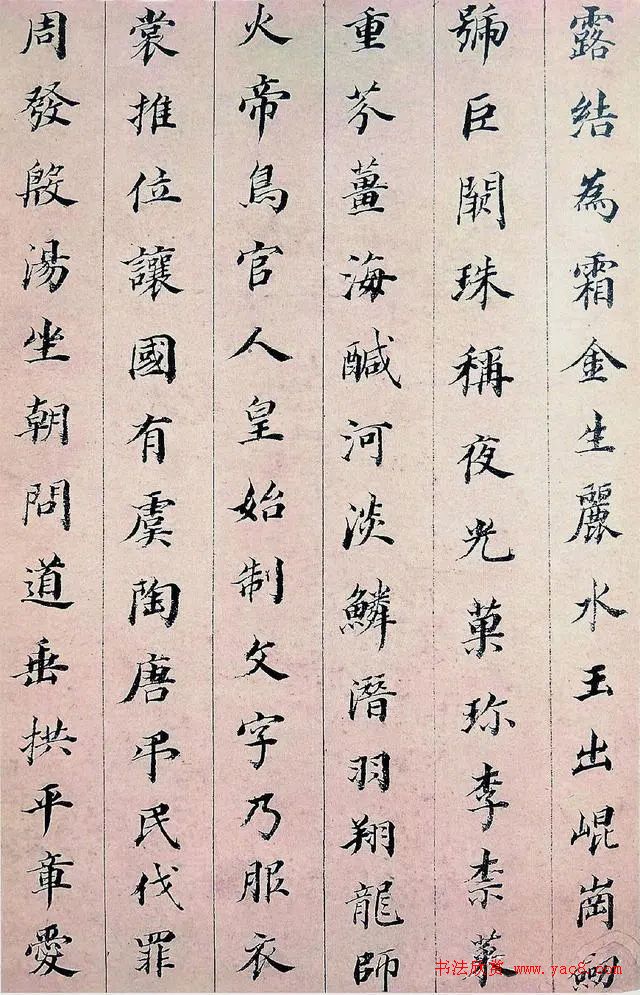 露結為霜金生麗水玉出崐崗劒
號巨闕珠稱夜光菓珎李柰菜
重芥薑海醎河淡鱗潛羽翔龍師
火帝鳥官人皇始制文字乃服衣
裳推位讓國有虞陶唐弔民伐罪
周發殷湯坐朝問道垂拱平章愛
书法欣赏 www.yac8.com